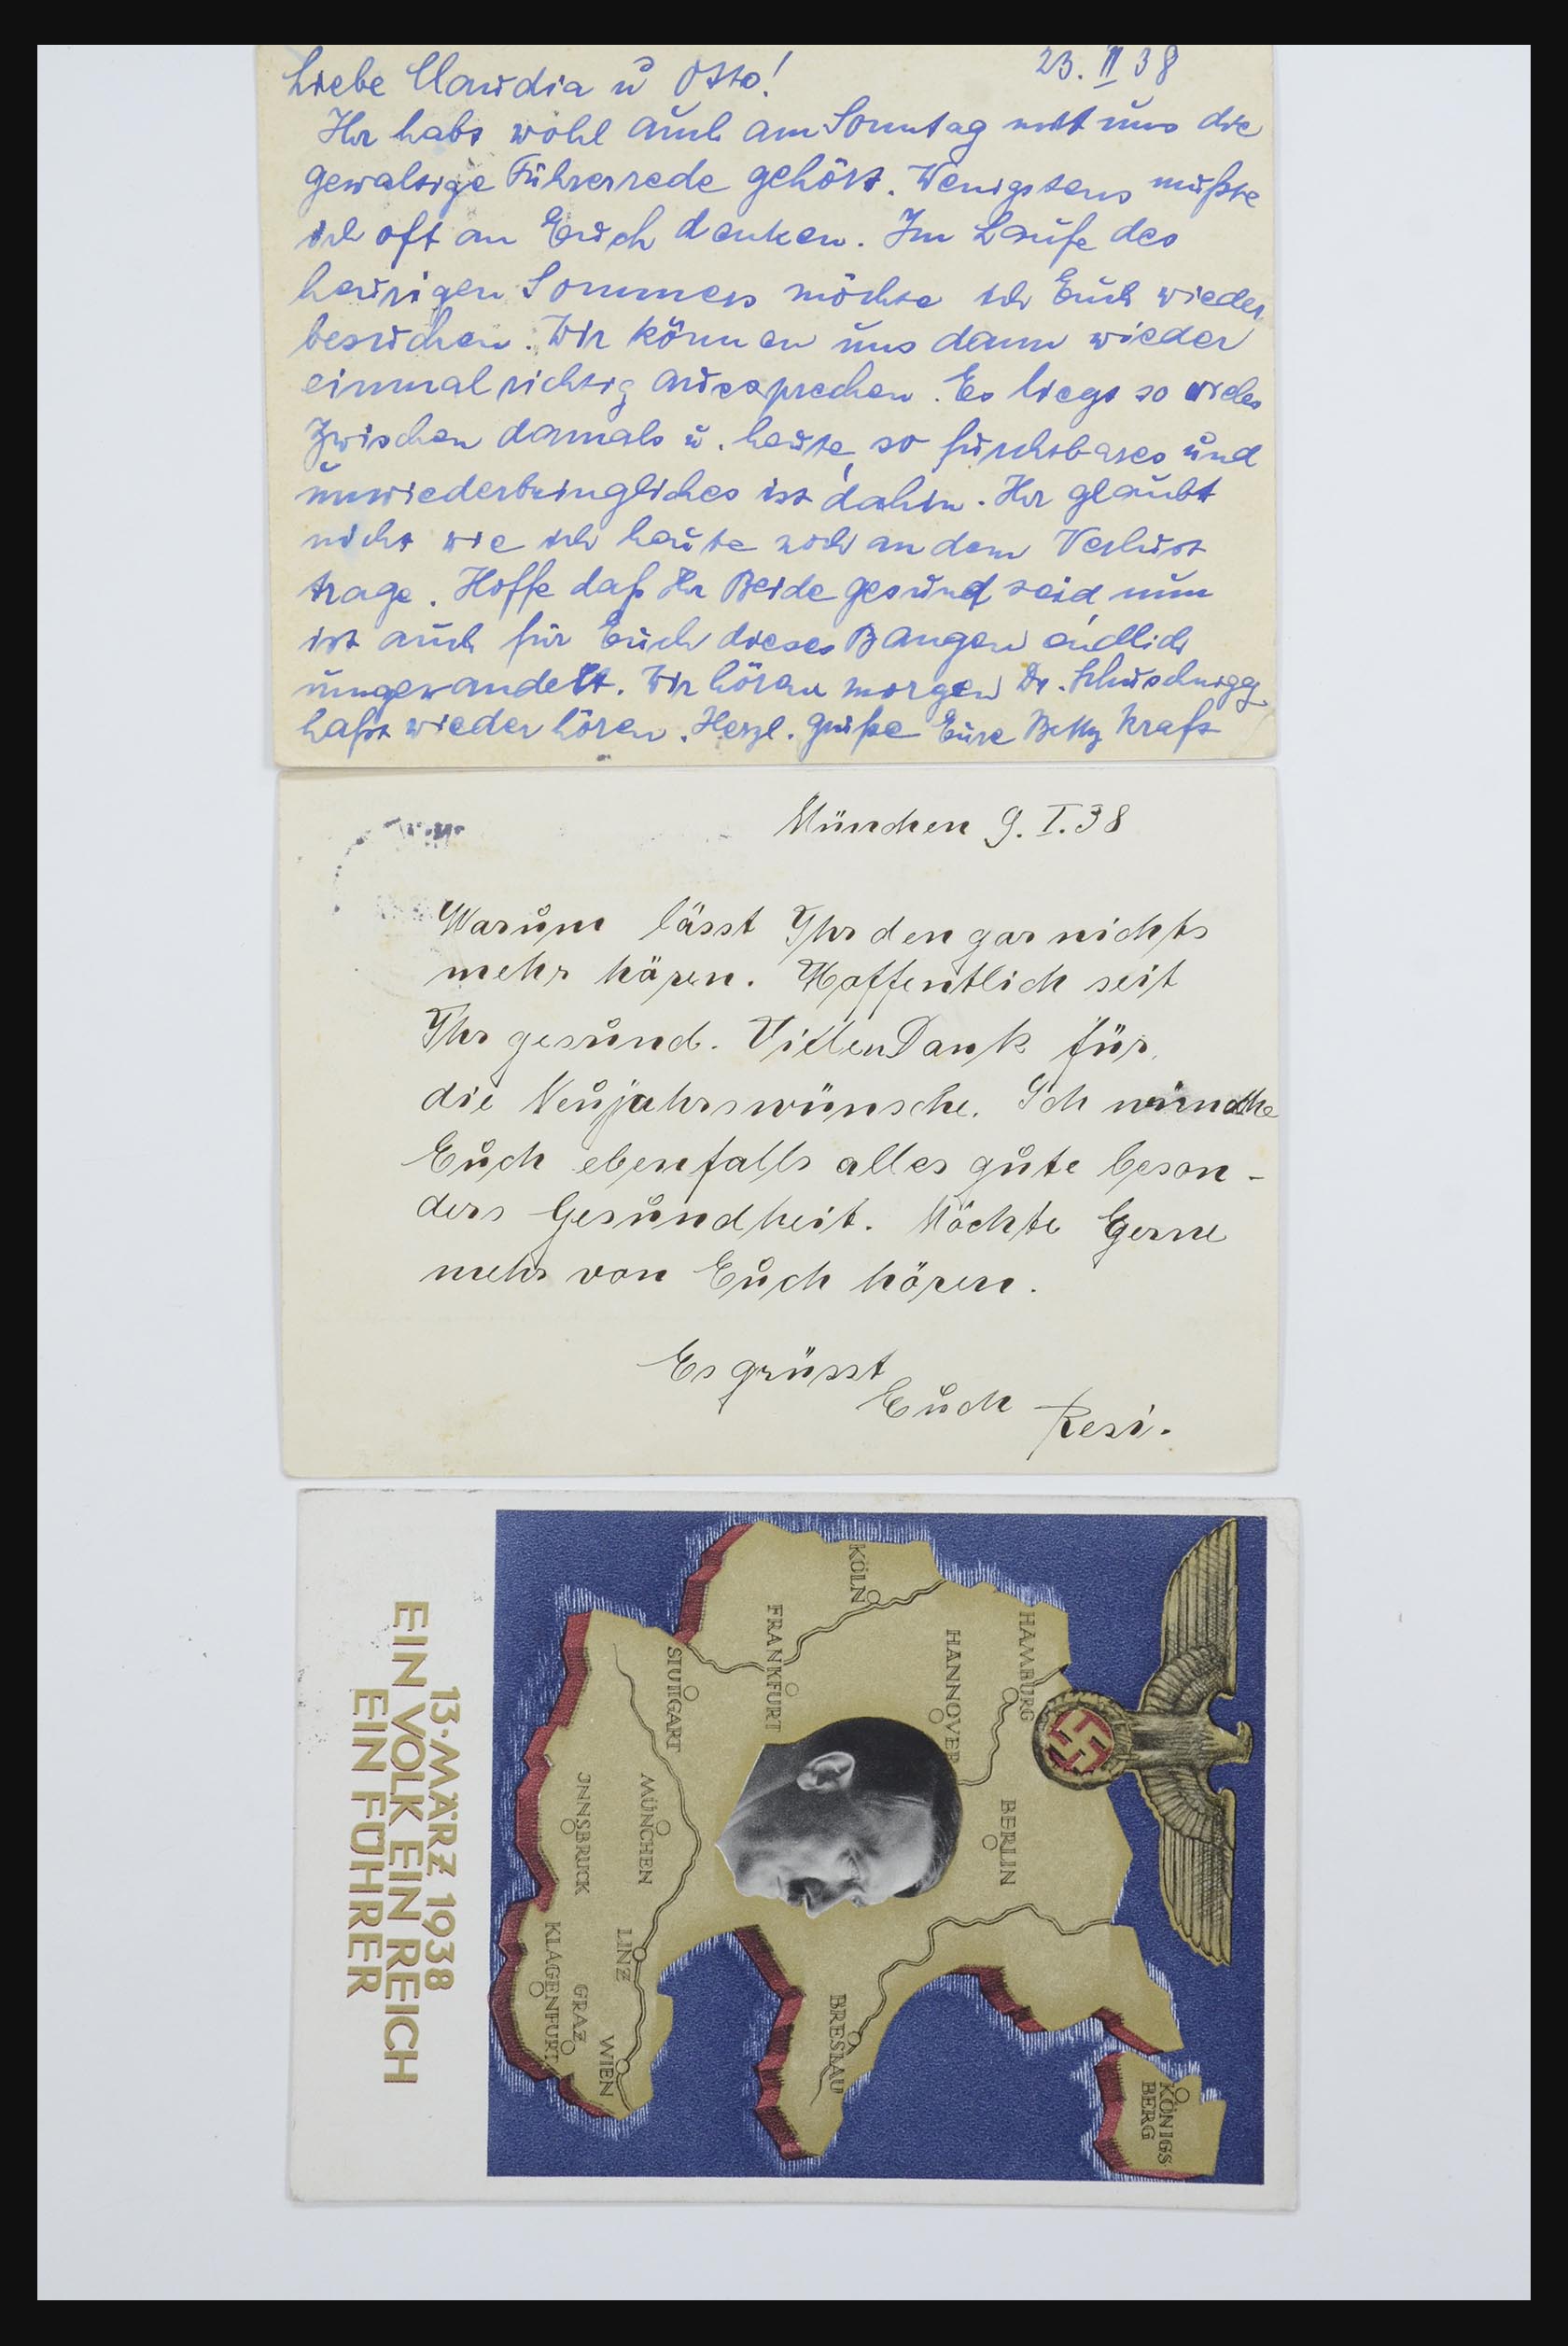 Liebe Claudia u Otto! 23. II 38
Ihr habt wohl auch am Sonntag mit uns die
gewaltige Führerrede gehört. Wenigstens mußte
ich oft an Euch denken. Im Laufe des
heurigen Sommers möchte ich Euch wieder
besuchen. Wir können uns dann wieder
einmal richtig aussprechen. Es liegt so vieles
zwischen damals u. heute, so furchtbares und
unwiederbringliches ist dahin. Ihr glaubt
nicht wie ich heute noch an dem Verlust
trage. Hoffe daß Ihr Beide gesund seid, nun
ist auch für Euch dieses Bangen endlich
umgewandelt. Wir hören morgen Dr. Schuschnigg
laßt wieder hören. Herzl. Grüße Eure Betty Kraft
München 9. I. 38
Warum lässt Ihr den gar nichts
mehr hören. Hoffentlich seit
Ihr gesund. Vielen Dank für
die Neujahrswünsche. Ich wünsche
Euch ebenfalls alles gute beson-
ders Gesundheit. Möchte Gerne
mehr von Euch hören.
Es grüsst
Euch Resi.
KÖLN
HAMBURG
HANNOVER
FRANKFURT
STUTTGART
BERLIN
MÜNCHEN
JNNSBRUCK
LINZ
KLAGENFURT
GRAZ
WIEN
BRESLAU
KÖNIGS-
BERG
13. MÄRZ 1938
EIN VOLK EIN REICH
EIN FÜHRER